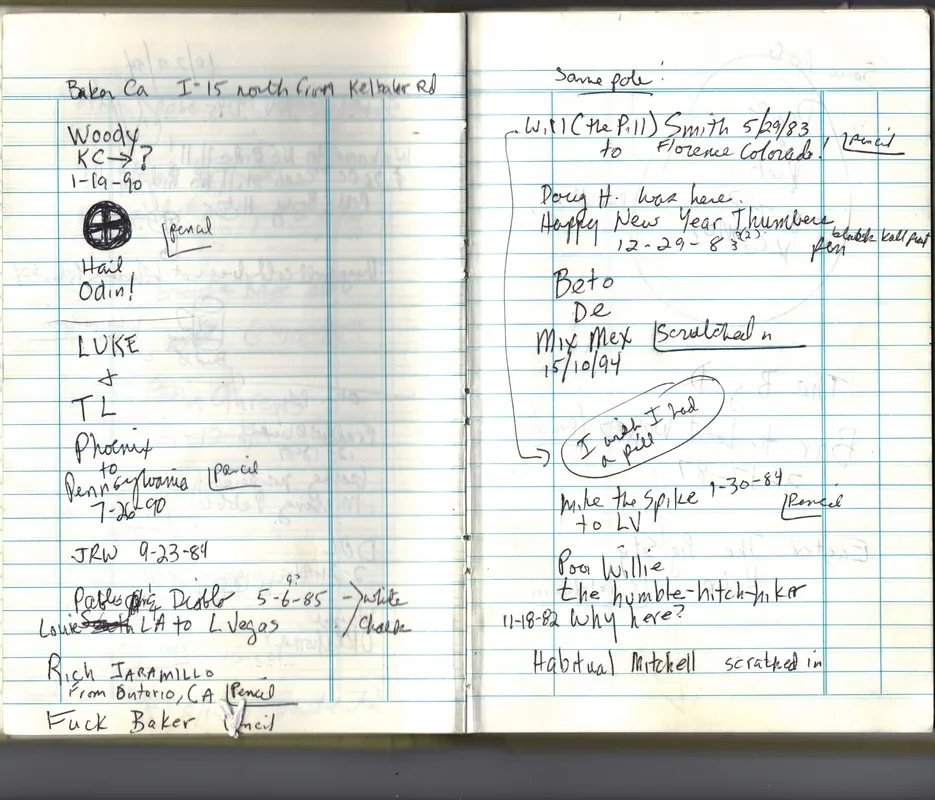 Baker Ca I-15 north from Kelbaker Rd
Woody
KC → ?
1-19-90
pencil
Hail
Odin!
LUKE
+
TL
Phoenix
to
Pennsylvania
pencil
7-26-90
JRW 9-23-84
9?
Pablo Diablo 5-6-85 white
Louie LA to L Vegas chalk
Rich JARAMILLO
From Ontario, CA Pencil
Fuck Baker pencil
Same pole!
Will (the Pill) Smith 5/29/83
to Florence Colorado! pencil
Doug H. was here.
Happy New Year Thumbers
12-29-83 (2)
pen
Beto
De
Mix Mex Scratched in
15/10/94
I wish I had
a pill
Mike the Spike 1-30-84
to LV Pencil
Poor Willie
the humble-hitch-hiker
11-18-82 Why here?
Habitual Mitchell scratched in